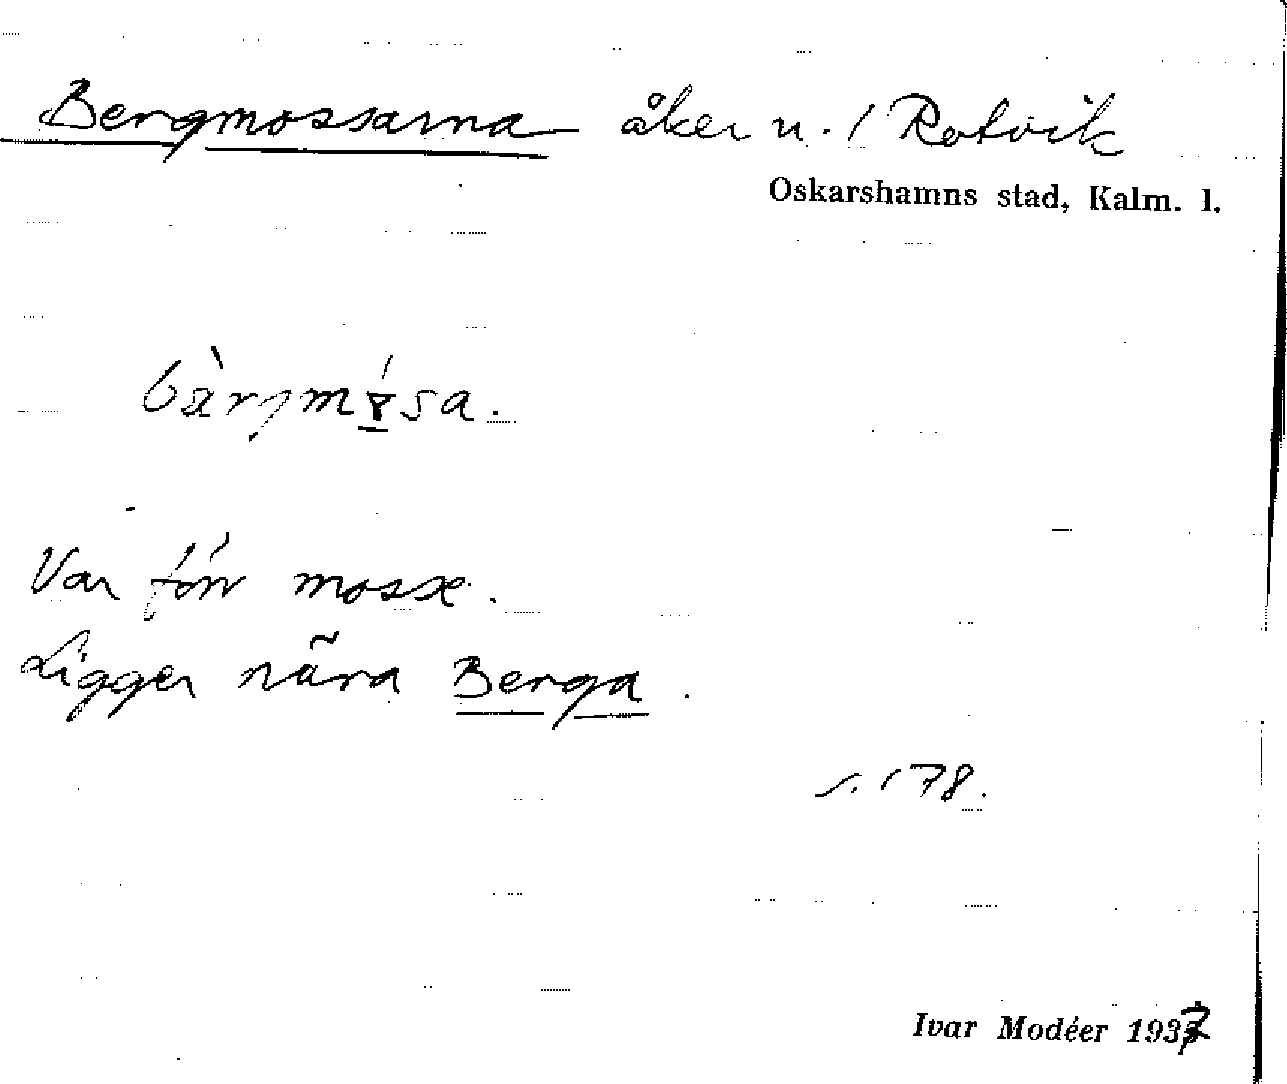 Bergmossarna åker u. / Rotvik
Oskarshamns stad, Kalm. l.
Var förr mosse.
Ligger nära Berga.
s. 178.
Ivar Modéer 1937